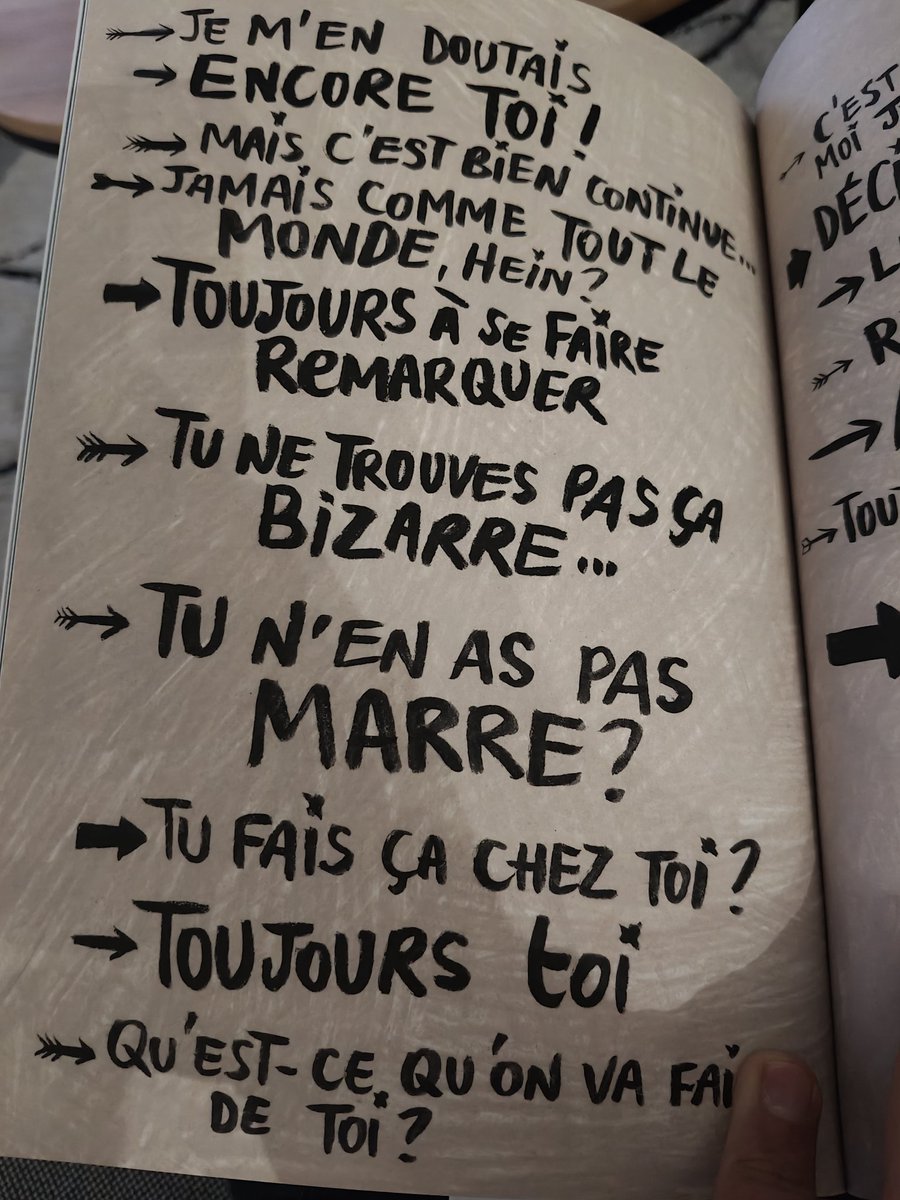 JE M'EN DOUTAIS
ENCORE TOI !
MAIS C'EST BIEN CONTINUE...
JAMAIS COMME TOUT LE
MONDE, HEIN ?
TOUJOURS À SE FAIRE
REMARQUER
TU NE TROUVES PAS ÇA
BIZARRE...
TU N'EN AS PAS
MARRE ?
TU FAIS ÇA CHEZ TOI ?
TOUJOURS toi
QU'EST-CE QU'ON VA FAI
DE TOI ?
C'EST
MOI J
DÉCI
L
R
TOU